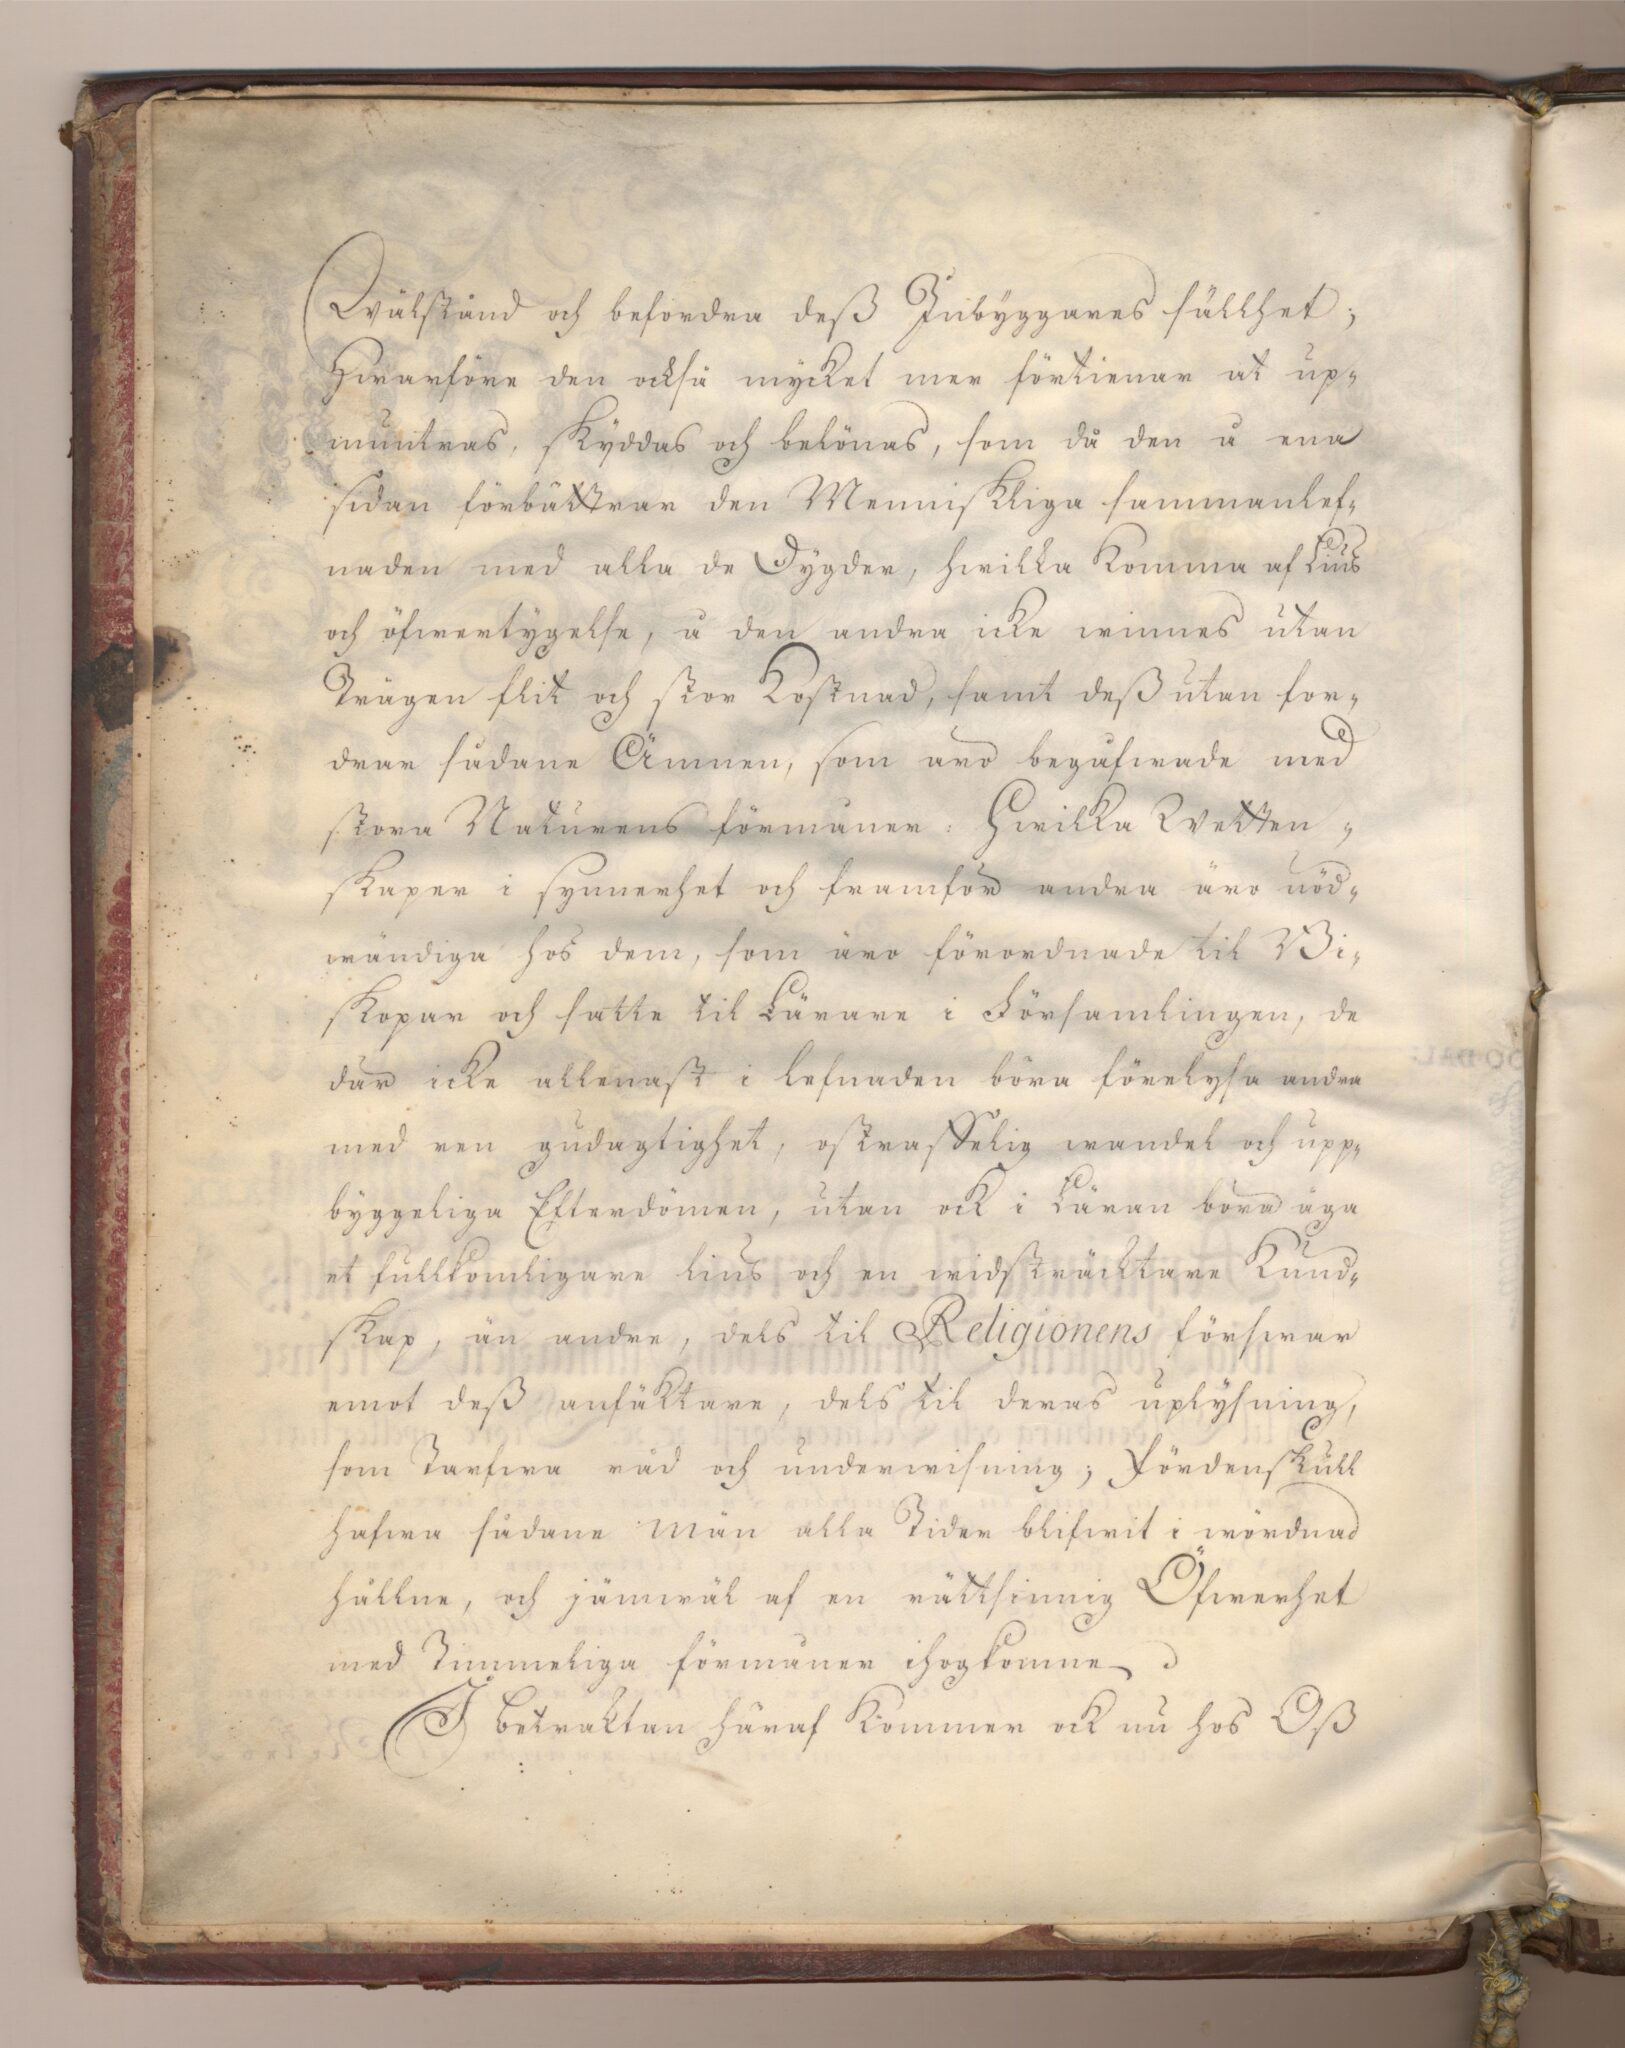 Wälstånd och befordra deß Inbyggares sällhet;
Hwarföre den också mycket mer förtienar at up-
muntras, skyddas och belönas, som då den å ena
sidan förbättrar den Menniskliga sammanlef-
naden med alla de Dygder, hwilka komma af Lius
och öfwertygelse, å den andra icke winnes utan
Trägen flit och stor Kostnad, samt deß utan for-
drar sådane Ämnen, som äro begåfwade med
stora Naturens förmåner: Hwilka Wetten-
skaper i synnerhet och framför andra äro nöd-
wändiga hos dem, som äro förordnade til Bi-
skopar och satte til Lärare i Församlingen, de
där icke allenast i lefnaden böra förelysa andra
med ren gudagtighet, ostrasselig wandel och upp-
byggeliga Efterdömen, utan ock i Läran böra äga
et fullkomligare lius och en widsträcktare Kund-
skap, än andre, dels til Religionens förswar
emot deß anfäktare, dels til deras uplysning,
som Tarfwa råd och underwisning; Fördenskull
hafwa sådane Män alla Tider blifwit i wördnad
hållne, och jämwäl af en rättsinnig Öfwerhet
med Timmeliga förmåner ihogkomne.
I betraktan häraf kommer ock nu hos Oß